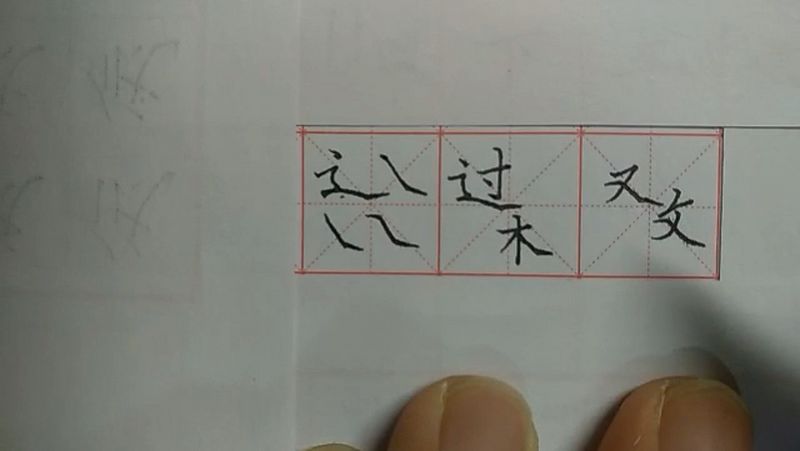 辶 ㇏ 过 又
㇏ ㇏ 木 文